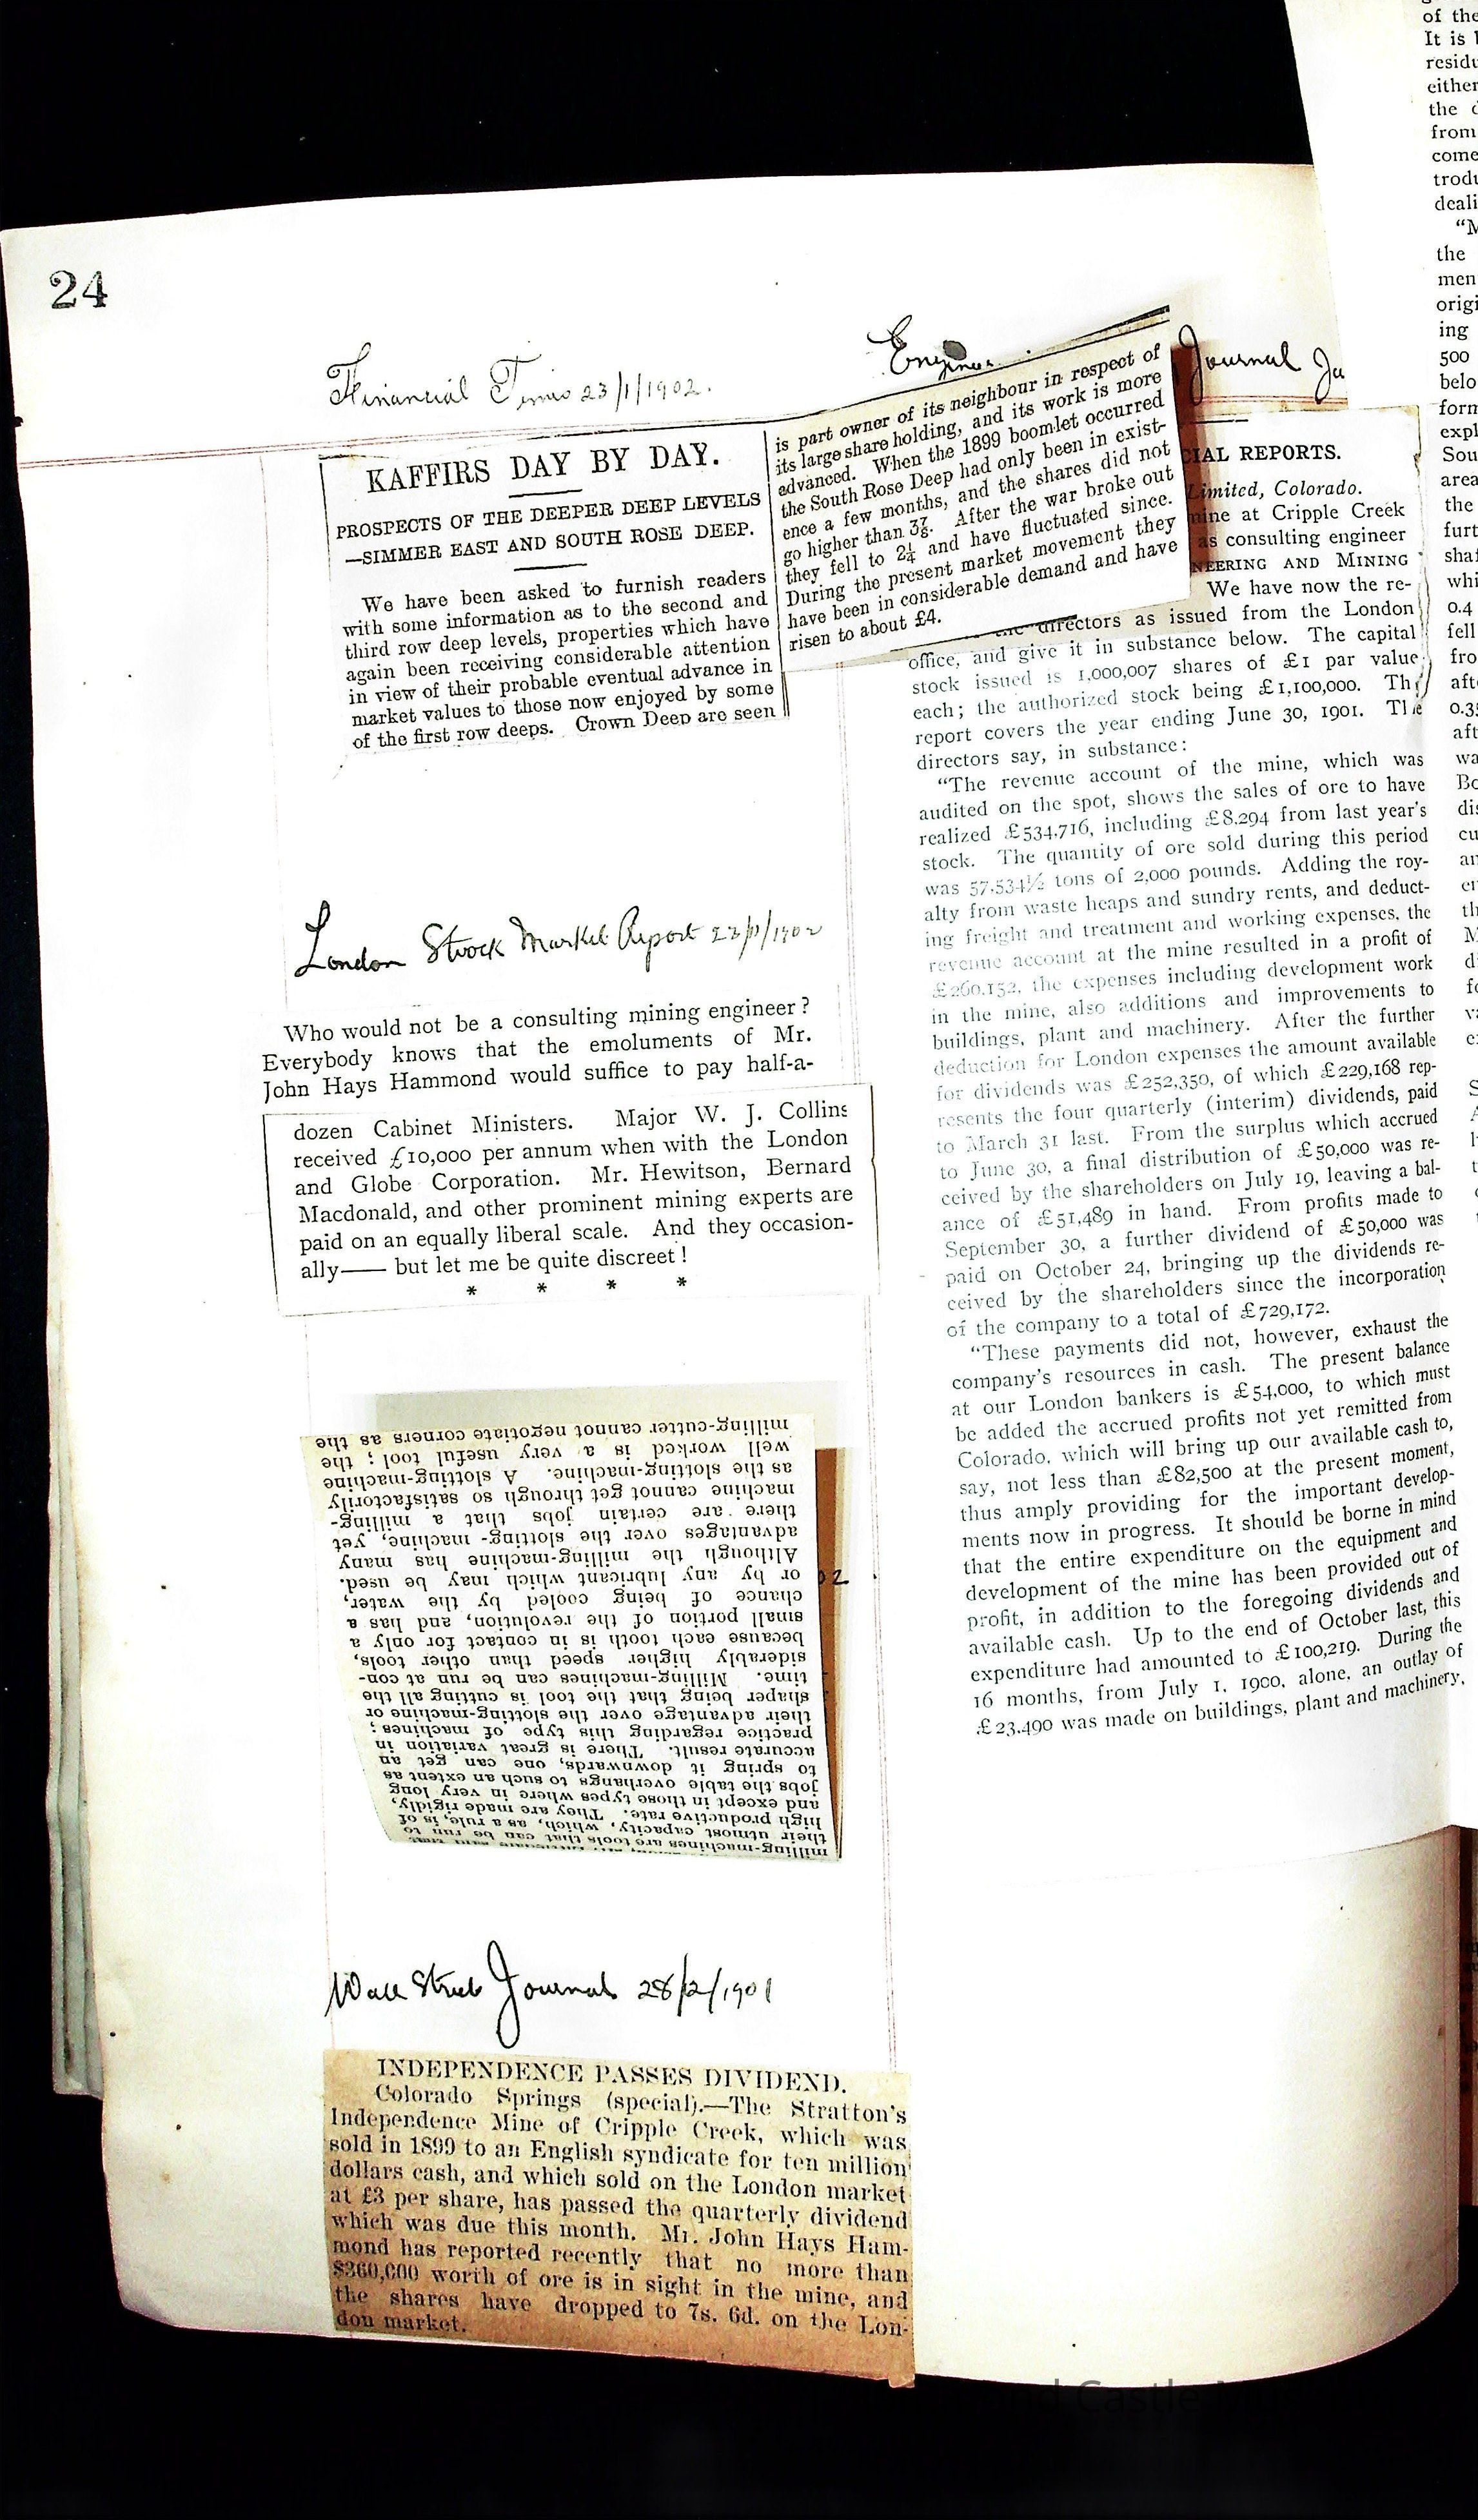 24
Financial Times 23/1/1902.
KAFFIRS DAY BY DAY.
PROSPECTS OF THE DEEPER DEEP LEVELS
—SIMMER EAST AND SOUTH ROSE DEEP.
We have been asked to furnish readers
with some information as to the second and
third row deep levels, properties which have
again been receiving considerable attention
in view of their probable eventual advance in
market values to those now enjoyed by some
of the first row deeps. Crown Deep are seen
is part owner of its neighbour in respect of
its large share holding, and its work is more
advanced. When the 1899 boomlet occurred
the South Rose Deep had only been in exist-
ence a few months, and the shares did not
go higher than 3⅞. After the war broke out
they fell to 2¼ and have fluctuated since.
During the present market movement they
have been in considerable demand and have
risen to about £4.
London Stock Market Report 23/1/1902
Who would not be a consulting mining engineer?
Everybody knows that the emoluments of Mr.
John Hays Hammond would suffice to pay half-a-
dozen Cabinet Ministers. Major W. J. Collins
received £10,000 per annum when with the London
and Globe Corporation. Mr. Hewitson, Bernard
Macdonald, and other prominent mining experts are
paid on an equally liberal scale. And they occasion-
ally—— but let me be quite discreet!
* * * *
milling-machines are tools that can be run to
their utmost capacity, which, as a rule, is of
high productive rate. They are made rigidly,
and except in those types where in very long
jobs the table overhangs to such an extent as
to spring it downwards, one can get an
accurate result. There is great variation in
practice regarding this type of machines;
their advantage over the slotting-machine or
shaper being that the tool is cutting all the
time. Milling-machines can be run at con-
siderably higher speed than other tools,
because each tooth is in contact for only a
small portion of the revolution, and has a
chance of being cooled by the water,
or by any lubricant which may be used.
Although the milling-machine has many
advantages over the slotting-machine, yet
there are certain jobs that a milling-
machine cannot get through so satisfactorily
as the slotting-machine. A slotting-machine
well worked is a very useful tool; the
milling-cutter cannot negotiate corners as the
02
Wall Street Journal 28/12/1901
INDEPENDENCE PASSES DIVIDEND.
Colorado Springs (special).—The Stratton's
Independence Mine of Cripple Creek, which was
sold in 1899 to an English syndicate for ten million
dollars cash, and which sold on the London market
at £3 per share, has passed the quarterly dividend
which was due this month. Mr. John Hays Ham-
mond has reported recently that no more than
$360,000 worth of ore is in sight in the mine, and
the shares have dropped to 7s. 6d. on the Lon-
don market.
Journal Ja
CIAL REPORTS.
Limited, Colorado.
mine at Cripple Creek
as consulting engineer
NEERING AND MINING
We have now the re-
the directors as issued from the London
office, and give it in substance below. The capital
stock issued is 1,000,007 shares of £1 par value
each; the authorized stock being £1,100,000. The
report covers the year ending June 30, 1901. The
directors say, in substance:
“The revenue account of the mine, which was
audited on the spot, shows the sales of ore to have
realized £534,716, including £8,294 from last year's
stock. The quantity of ore sold during this period
was 57,534½ tons of 2,000 pounds. Adding the roy-
alty from waste heaps and sundry rents, and deduct-
ing freight and treatment and working expenses, the
revenue account at the mine resulted in a profit of
£260,152, the expenses including development work
in the mine, also additions and improvements to
buildings, plant and machinery. After the further
deduction for London expenses the amount available
for dividends was £252,350, of which £229,168 rep-
resents the four quarterly (interim) dividends, paid
to March 31 last. From the surplus which accrued
to June 30, a final distribution of £50,000 was re-
ceived by the shareholders on July 19, leaving a bal-
ance of £51,489 in hand. From profits made to
September 30, a further dividend of £50,000 was
paid on October 24, bringing up the dividends re-
ceived by the shareholders since the incorporation
of the company to a total of £729,172.
“These payments did not, however, exhaust the
company's resources in cash. The present balance
at our London bankers is £54,000, to which must
be added the accrued profits not yet remitted from
Colorado, which will bring up our available cash to,
say, not less than £82,500 at the present moment,
thus amply providing for the important develop-
ments now in progress. It should be borne in mind
that the entire expenditure on the equipment and
development of the mine has been provided out of
profit, in addition to the foregoing dividends and
available cash. Up to the end of October last, this
expenditure had amounted to £100,219. During the
16 months, from July 1, 1900, alone, an outlay of
£23,490 was made on buildings, plant and machinery,
of the
It is
residu
either
the
from
come
trodu
deali
“M
the
men
origi
ing
500
belo
form
expl
Sou
area
the
furt
shaf
whi
0.4
fell
fro
aft
0.35
aft
wa
Bo
dis
cu
an